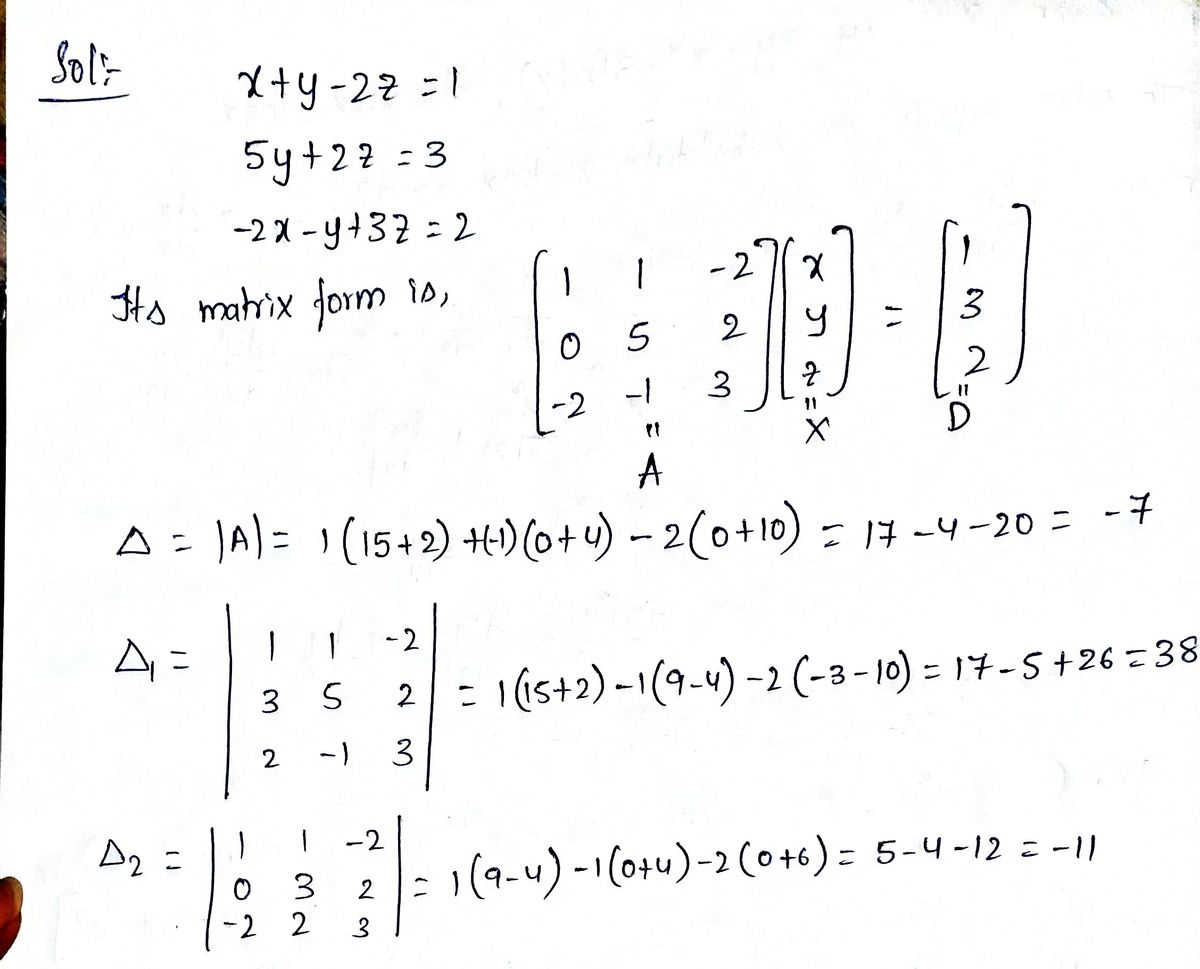 Sol:-
x+y-2z=1
5y+2z=3
-2x-y+3z=2
Its matrix form is, [1 1 -2; 0 5 2; -2 -1 3] [x; y; z] = [1; 3; 2]
" A " X " D
Δ = |A| = 1(15+2)+(-1)(0+4)-2(0+10) = 17-4-20 = -7
Δ₁ = |1 1 -2; 3 5 2; 2 -1 3| = 1(15+2)-1(9-4)-2(-3-10) = 17-5+26=38
Δ₂ = |1 1 -2; 0 3 2; -2 2 3| = 1(9-4)-1(0+4)-2(0+6) = 5-4-12 = -11